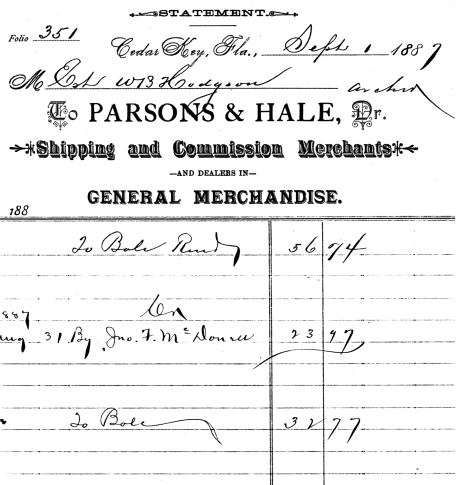 STATEMENT.
Folio 351
Cedar Key, Fla., Sept 1 1887
M Est W B Hodgson
To PARSONS & HALE, Dr.
Shipping and Commission Merchants
—AND DEALERS IN—
GENERAL MERCHANDISE.
188
To Bale Rend 56 74
Cr
887
ug 31 By Jno. F. McDonell 23 97
To Bale 32 77